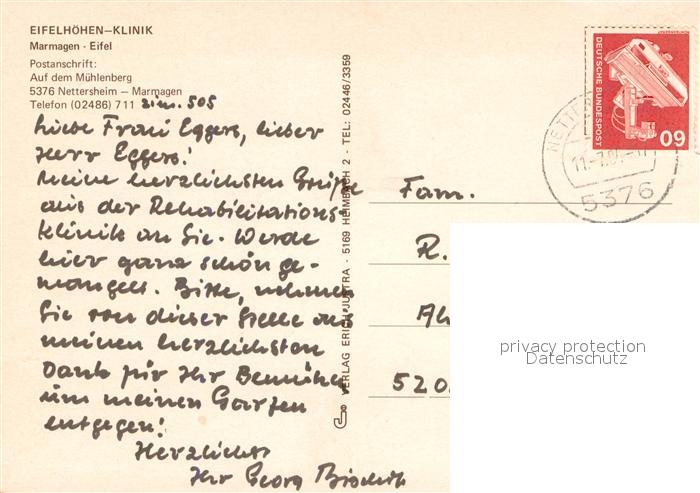 EIFELHÖHEN–KLINIK
Marmagen · Eifel
Postanschrift:
Auf dem Mühlenberg
5376 Nettersheim — Marmagen
Telefon (02486) 711 Zim. 505
Liebe Frau Eggers, lieber
Herr Eggers!
Meine herzlichsten Grüße
aus der Rehabilitations-
klinik an Sie. Werde
hier ganz schön ge-
mangelt. Bitte, nehmen
Sie von dieser Stelle aus
meinen herzlichsten
Dank für Ihr Bemühen
um meinen Garten
entgegen!
Herzlichst
Ihr Georg
VERLAG ERICH JUSTRA · 5169 HEIMBACH 2 · TEL: 02446/3359
DEUTSCHE BUNDESPOST
60
5376
Fam.
R.
520
privacy protection
Datenschutz